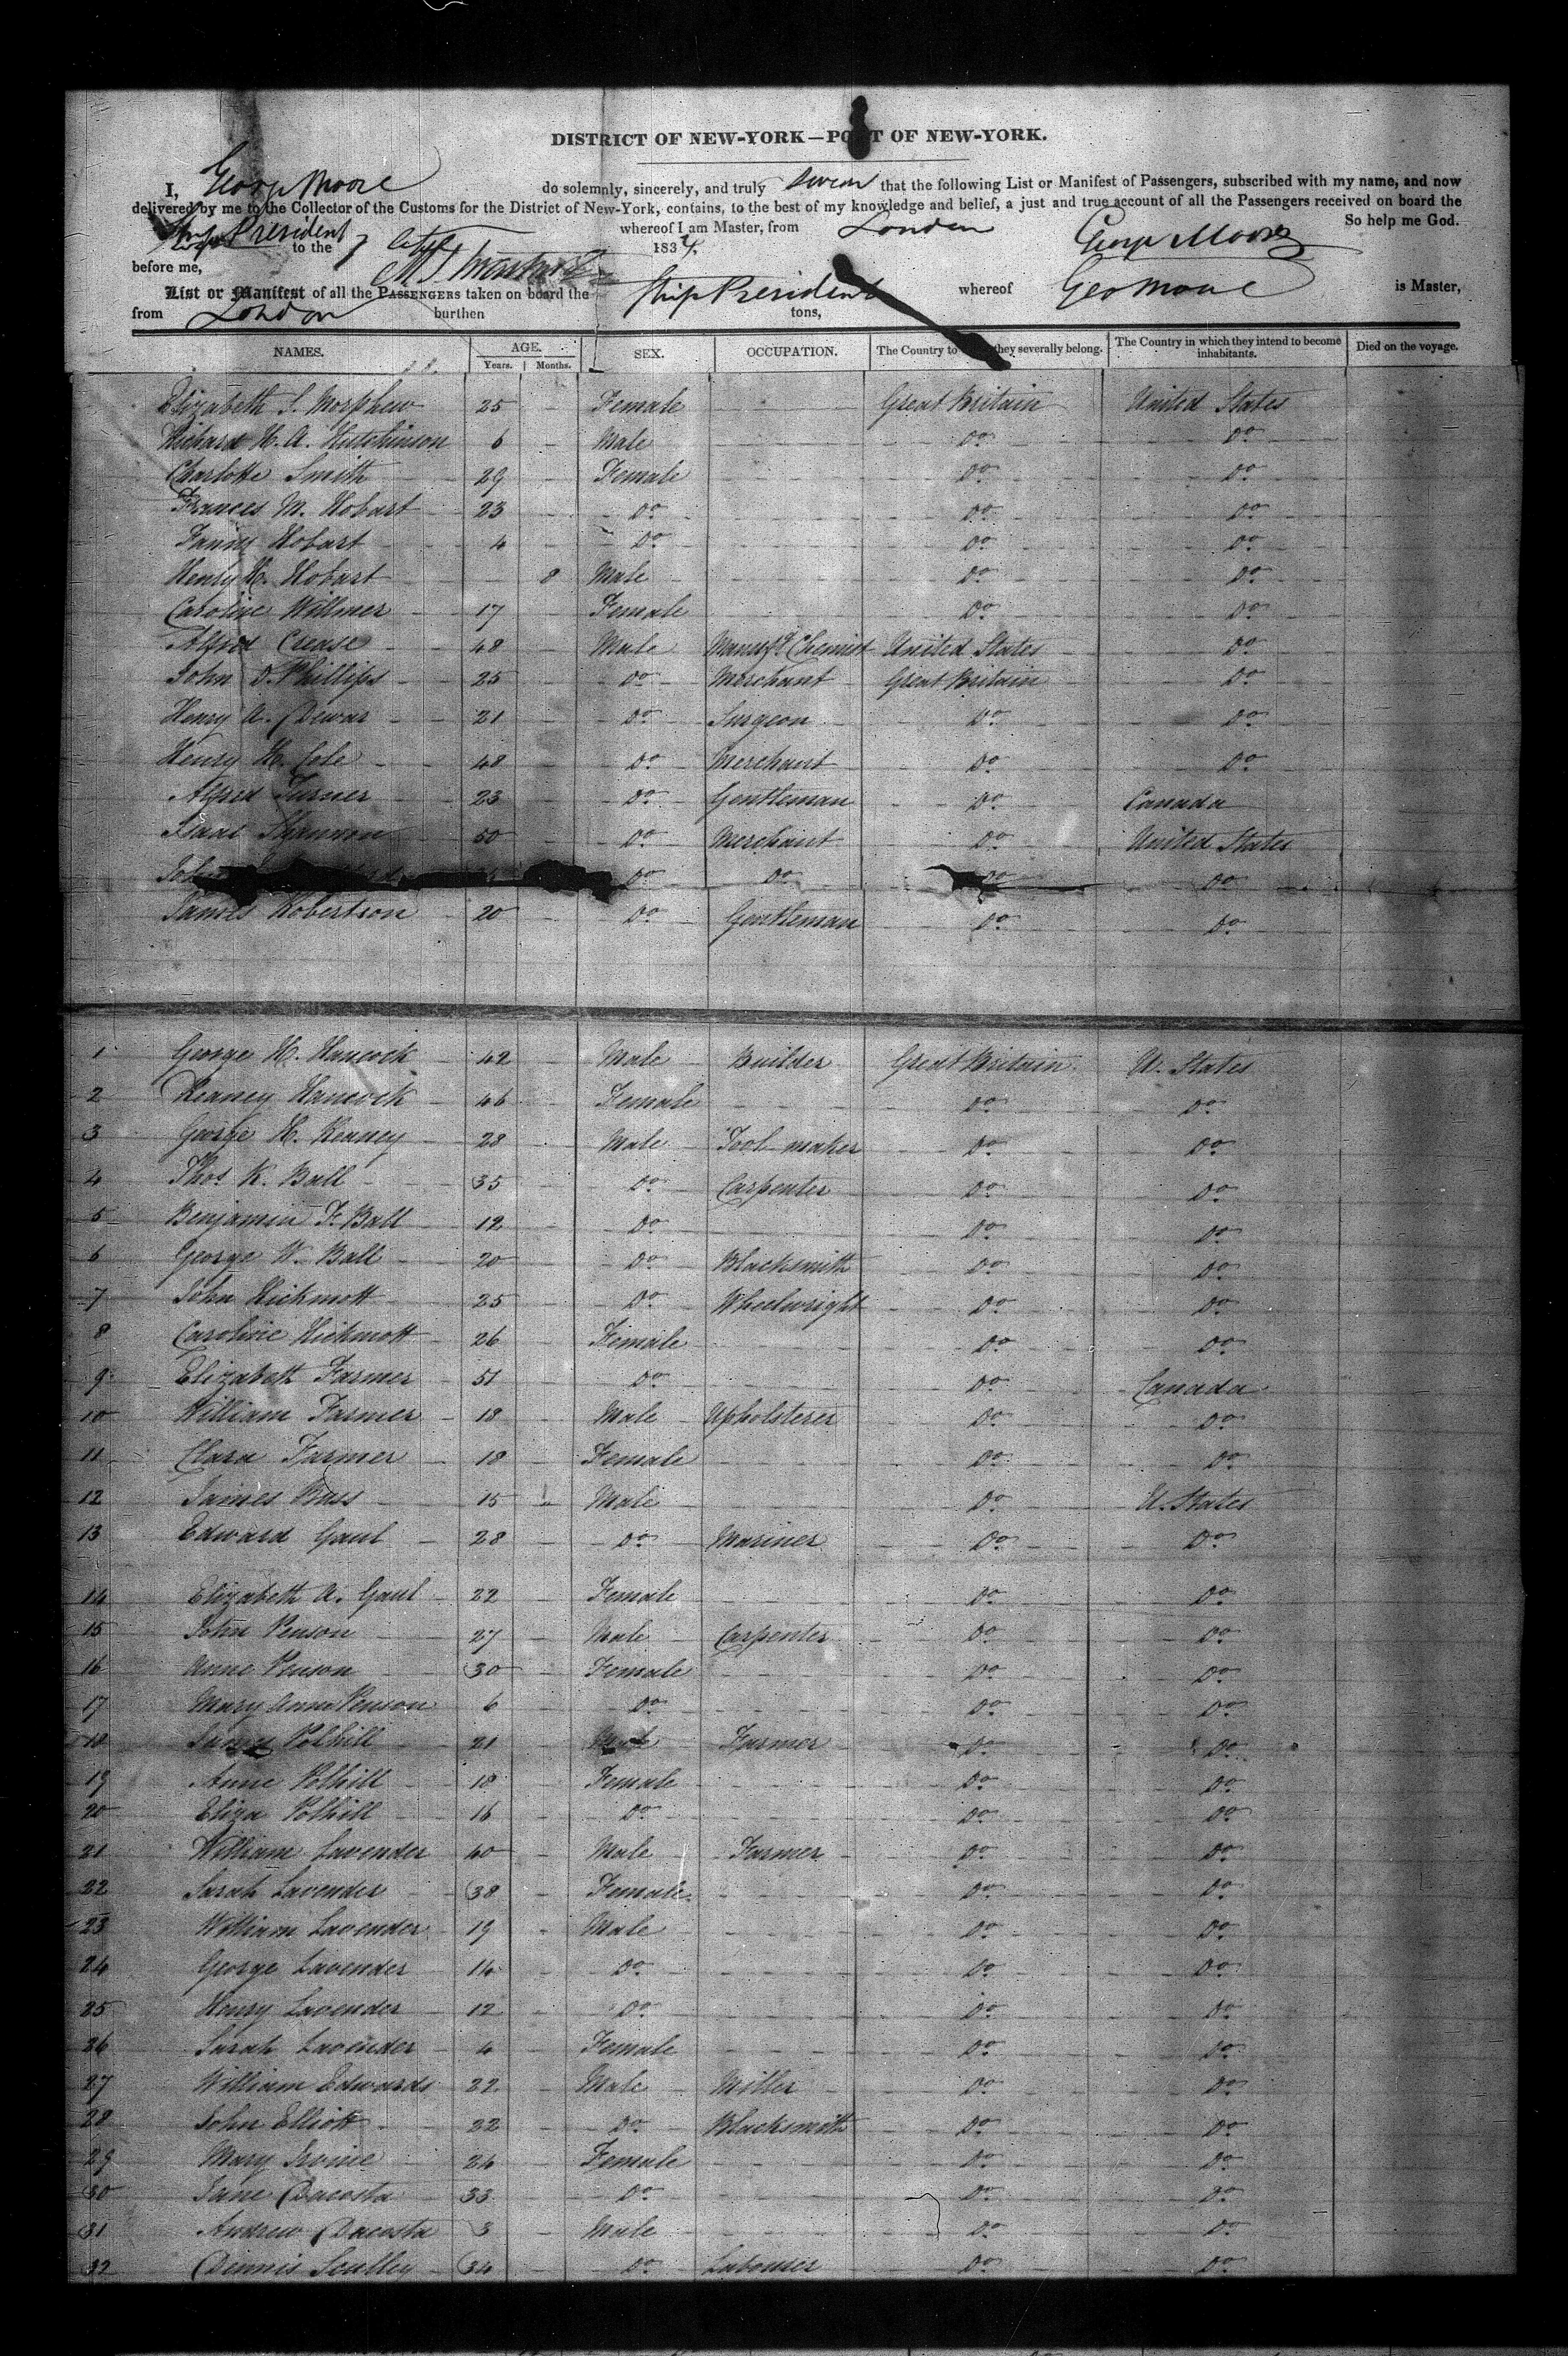 DISTRICT OF NEW-YORK—PORT OF NEW-YORK.
I, George Moore do solemnly, sincerely, and truly swear that the following List or Manifest of Passengers, subscribed with my name, and now
delivered by me to the Collector of the Customs for the District of New-York, contains, to the best of my knowledge and belief, a just and true account of all the Passengers received on board the
Ship President whereof I am Master, from London So help me God.
to the 183 George Moore
before me,
List or Manifest of all the PASSENGERS taken on board the Ship President whereof Geo Moore is Master,
from London burthen tons,
NAMES. AGE. SEX. OCCUPATION. The Country to they severally belong. The Country in which they intend to become inhabitants. Died on the voyage.
Years. Months.
Elizabeth S. Morphew 25 Female Great Britain United States
Richard H. A. Hutchinson 6 Male Do Do
Charlotte Smith 29 Female Do Do
Frances M. Hobart 23 Do Do Do
Fanny Hobart 4 Do Do Do
Henry H. Hobart 8 Male Do Do
Caroline Willmer 17 Female Do Do
Alfred Crease 48 Male Manufg Chemist United States Do
John D. Phillips 25 Do Merchant Great Britain Do
Henry A. Dewar 21 Do Surgeon Do Do
Henry H. Cole 48 Do Merchant Do Do
Alfred Turner 23 Do Gentleman Do Canada
Isaac Shannon 50 Do Merchant Do United States
John Do Do Do Do
James Robertson 20 Do Gentleman Do Do
1 George H. Hancock 42 Male Builder Great Britain U. States
2 Keaney Hancock 46 Female Do Do
3 George H. Keaney 28 Male Tool maker Do Do
4 Thos K. Ball 35 Do Carpenter Do Do
5 Benjamin F. Ball 12 Do Do Do
6 George W. Ball 20 Do Blacksmith Do Do
7 John Hickmott 25 Do Wheelwright Do Do
8 Caroline Hickmott 26 Female Do Do
9 Elizabeth Farmer 51 Do Do Canada
10 William Farmer 18 Male Upholsterer Do Do
11 Clara Farmer 18 Female Do Do
12 James Buss 15 Male Do U. States
13 Edward Gaul 28 Do Mariner Do Do
14 Elizabeth A. Gaul 22 Female Do Do
15 John Penson 27 Male Carpenter Do Do
16 Anne Penson 30 Female Do Do
17 Mary Anne Penson 6 Do Do Do
18 James Polhill 21 Male Farmer Do Do
19 Anne Polhill 18 Female Do Do
20 Eliza Polhill 16 Do Do Do
21 William Lavender 40 Male Farmer Do Do
22 Sarah Lavender 38 Female Do Do
23 William Lavender 19 Male Do Do
24 George Lavender 14 Do Do Do
25 Henry Lavender 12 Do Do Do
26 Sarah Lavender 4 Female Do Do
27 William Edwards 22 Male Miller Do Do
28 John Elliott 22 Do Blacksmith Do Do
29 Mary Irvine 24 Female Do Do
30 Jane Dacosta 33 Do Do Do
31 Andrew Dacosta 3 Male Do Do
32 Dennis Sculley 34 Do Labourer Do Do